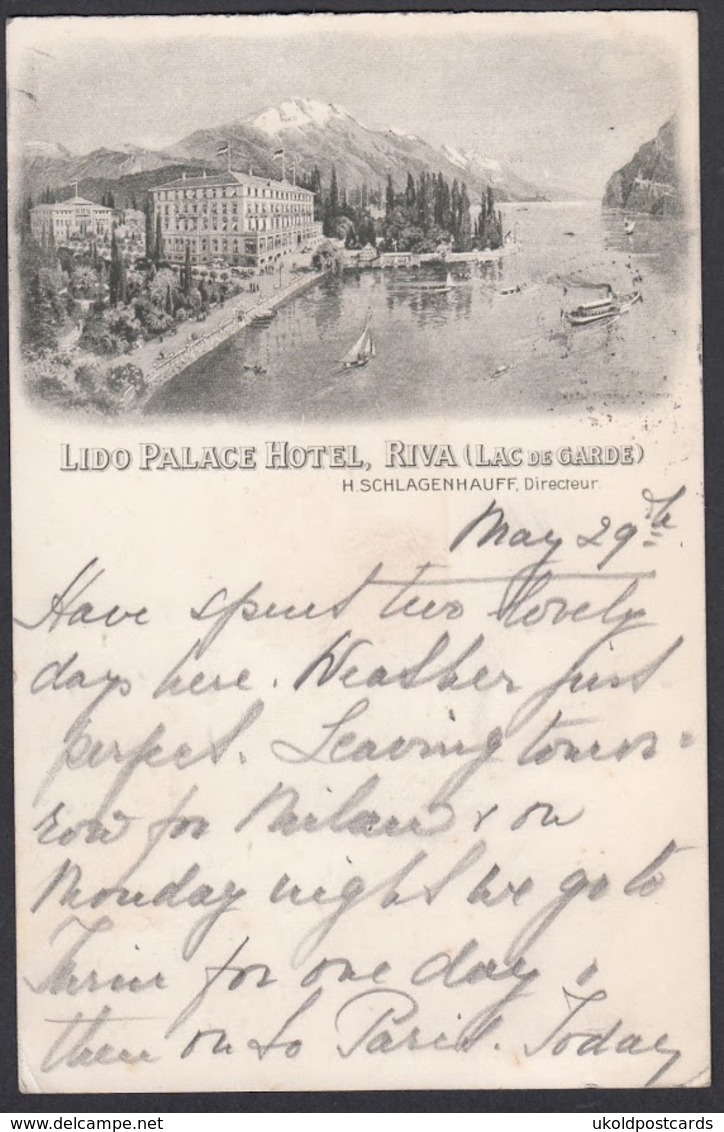 LIDO PALACE HOTEL, RIVA (LAC DE GARDE)
H. SCHLAGENHAUFF, Directeur.
May 29th
Have spent two lovely
days here. Weather just
perfect. Leaving tomor=
row for Milan & on
Monday night we go to
Turin for one day,
then on to Paris. Today
ukoldpostcards